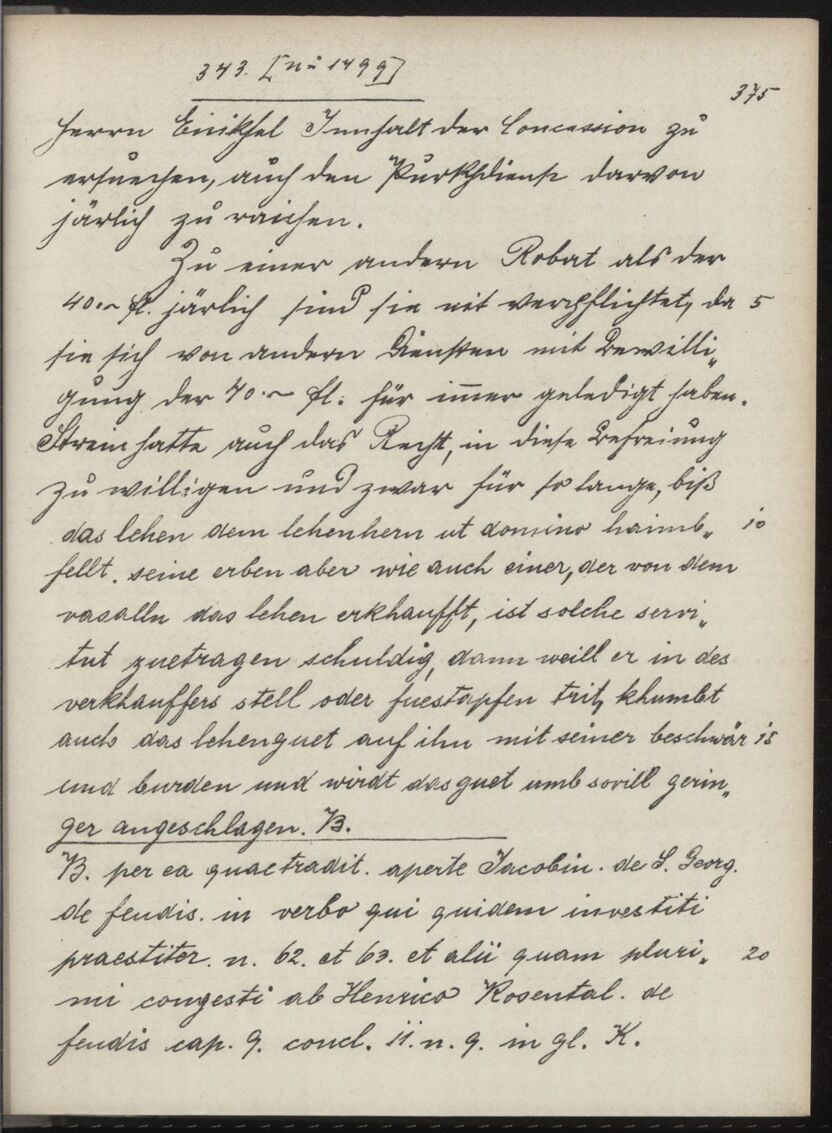 343. [Nu 1499]
375
Herrn Enikhel Innhalt der Concession zu
ersuechen, auch den Purkhdienst darvon
järlich zu raichen.
Zu einer andern Robat als der
40.~ fl. järlich sind sie nit verpflichtet, da 5
sie sich von andern Diensten mit Bewilli„
gung der 40.~ fl. für im̄er geledigt haben.
Strein hatte auch das Recht, in diese Befreiung
zu willigen und zwar für so lange, biß
das lehen dem lehenhern ut domino haimb„ 10
fellt. seine erben aber wie auch einer, der von dem
vasalln das lehen erkhaufft, ist solche servi„
tut zuetragen schuldig, dann weill er in des
verkhauffers stell oder fuestapfen trit, khumbt
auch das lehenguet auf ihn mit seiner beschwär 15
und burden und wirdt das guet umb sovill gerin„
ger angeschlagen. B.
B. per ea quae tradit. aperte Jacobin. de S. Georg.
de feudis. in verbo qui quidem investiti
praestiter. n. 62. et 63. et alii quam pluri„ 20
mi congesti ab Henrico Rosental. de
feudis cap. 9. concl. 11. n. 9. in gl. K.